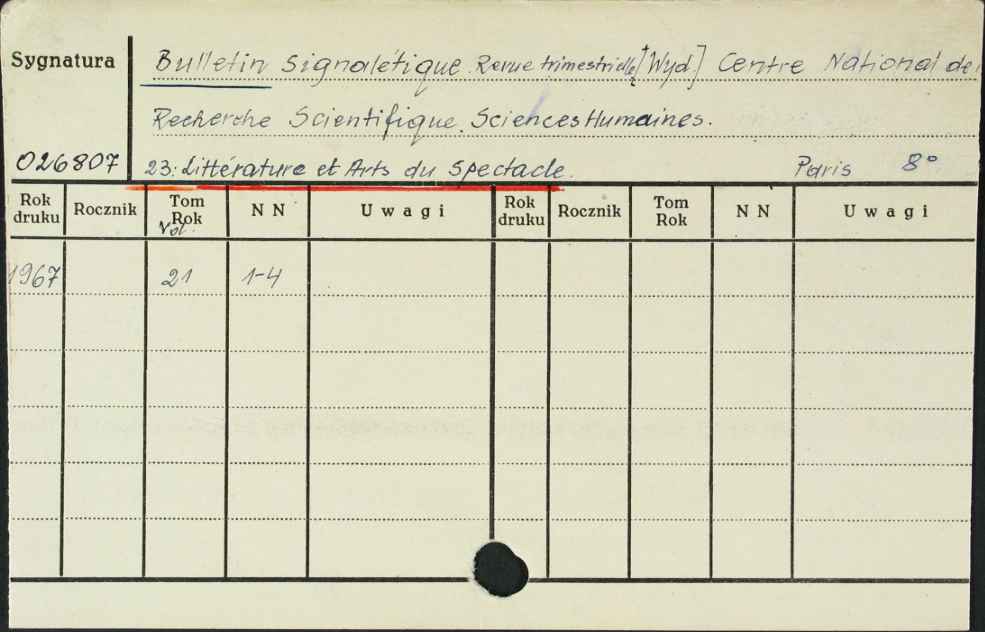 Sygnatura Bulletin Signalétique. Revue trimestrielle [Wyd] Centre National de
Recherche Scientifique. Sciences Humaines.
026807 23: Littérature et Arts du Spectacle. Paris 8°
Rok druku Rocznik Tom Rok Vol. NN Uwagi Rok druku Rocznik Tom Rok NN Uwagi
1967 21 1-4